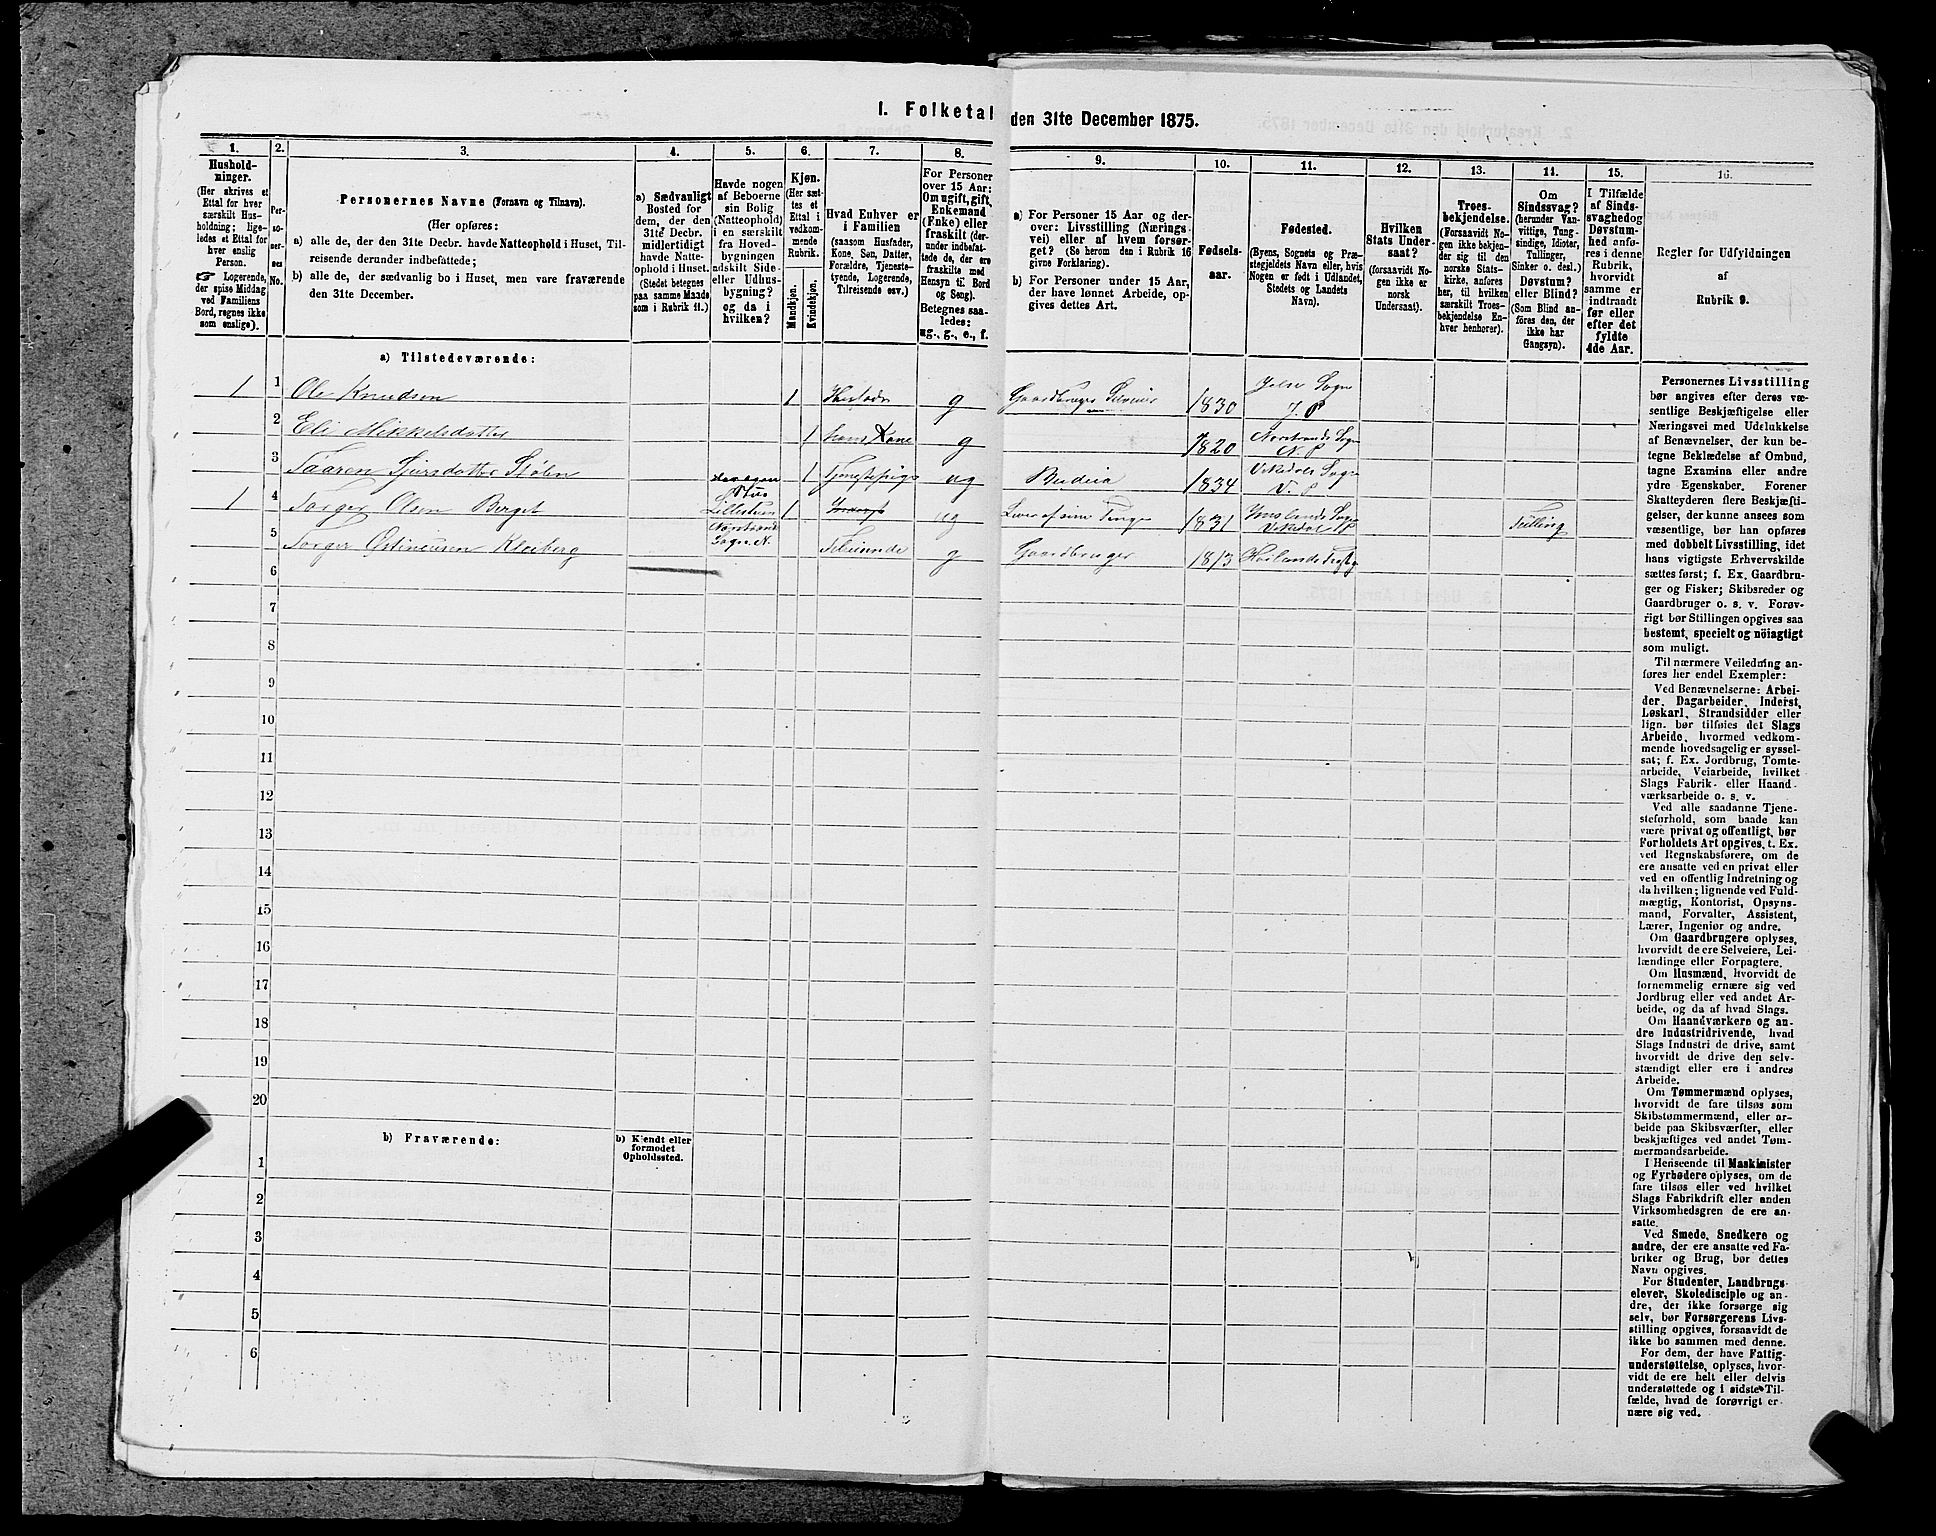 I. Folketal den 31te December 1875.
1.
Hushold-
ninger.
(Her skrives et
Ettal for hver
særskilt Hus-
holdning; lige-
ledes et Ettal for
hver enslig
Person.
☞ Logerende,
der spise Middag
ved Familiens
Bord, regnes ikke
som enslige).
2.
Per-
so-
ner-
nes
No.
3.
Personernes Navne (Fornavn og Tilnavn).
(Her opføres:
a) alle de, der den 31te Decbr. havde Natteophold i Huset, Til-
reisende derunder indbefattede;
b) alle de, der sædvanlig bo i Huset, men vare fraværende
den 31te December.
4.
a) Sædvanligt
Bosted for
dem, der den
31te Decbr.
midlertidigt
havde Natte-
ophold i Huset.
(Stedet betegnes
paa samme Maade
som i Rubrik 11.)
5.
Havde nogen
af Beboerne
sin Bolig
(Natteophold)
i en særskilt
fra Hoved-
bygningen
adskilt Side-
eller Udhus-
bygning?
og da i
hvilken?
6.
Kjøn.
(Her sæt-
tes et
Ettal i
vedkom-
mende
Rubrik.
Mandkjøn.
Kvindekjøn.
7.
Hvad Enhver er
i Familien
(saasom Husfader,
Kone, Søn, Datter,
Forældre, Tjeneste-
tyende, Logerende,
Tilreisende osv.)
8.
For Personer
over 15 Aar:
Om ugift, gift,
Enkemand
(Enke) eller
fraskilt (der-
under indbefat-
tede de, der ere
fraskilte med
Hensyn til Bord
og Seng).
Betegnes saa-
ledes:
ug., g., e., f.
9.
a) For Personer 15 Aar og der-
over: Livsstilling (Nærings-
vei) eller af hvem forsør-
get? (Se herom den i Rubrik 16
givne Forklaring).
b) For Personer under 15 Aar,
der have lønnet Arbeide, op-
gives dettes Art.
10.
Fødsels-
aar.
11.
Fødested.
(Byens, Sognets og Præ-
stegjeldets Navn eller, hvis
Nogen er født i Udlandet,
Stedets og Landets
Navn).
12.
Hvilken
Stats Under-
saat?
(forsaavidt No-
gen ikke er
norsk
Undersaat).
13.
Troes-
bekjendelse.
(Forsaavidt No-
gen ikke bekjen-
der sig til den
norske Stats-
kirke, anføres
her, til hvilken
særskilt Troes-
bekjendelse En-
hver henhører).
14.
Om
Sindssvag?
(herunder Van-
vittige, Tung-
sindige, Idioter,
Tullinger,
Sinker o. desl.)
Døvstum?
eller Blind?
(Som Blind an-
føres den, der
ikke har
Gangsyn).
15.
I Tilfælde
af Sinds-
svaghed og
Døvstum-
hed anfø-
res i denne
Rubrik,
hvorvidt
samme er
indtraadt
før eller
efter det
fyldte
4de Aar.
16.
Regler for Udfyldningen
af
Rubrik 9.
a) Tilstedeværende:
1 1 Ole Knudsen 1 g Gaardbruger Selveier 1830 Jelse Sogn J. P
2 Eli Mikkelsdatter 1 hans Kone g 1820 Nerstrands Sogn N. P
3 Taaren Sjursdatter Støbn 1 Tjenestepige ug Budeia 1834 Vikedals Sogn V. P
1 4 Torger Olsen Berget 1 ug Lever af sine Penge 1831 Imslands Sogn Vikedal P Tulling
5 Torger Østineusen g Gaardbruger 1813
6
7
8
9
10
11
12
13
14
15
16
17
18
19
20
b) Fraværende:
b) Kjendt eller
formodet
Opholdssted.
1
2
3
4
5
6
Personernes Livsstilling
bør angives efter deres væ-
sentlige Beskjæftigelse eller
Næringsvei med Udelukkelse
af Benævnelser, der kun be-
tegne Beklædelse af Ombud,
tagne Examina eller andre
ydre Egenskaber. Forener
Skatteyderen flere Beskjæfti-
gelser, der kunne ansees som
væsentlige, bør han opføres
med dobbelt Livsstilling, idet
hans vigtigste Erhvervskilde
sættes først; f. Ex. Gaardbru-
ger og Fisker; Skibsreder og
Gaardbruger o. s. v. Forøv-
rigt bør Stillingen opgives saa
bestemt, specielt og nöiagtigt
som muligt.
Til nærmere Veiledning an-
føres her endel Exempler:
Ved Benævnelserne: Arbei-
der, Dagarbeider, Inderst,
Løskarl, Strandsidder eller
lign. bør tilføies det Slags
Arbeide, hvormed vedkom-
mende hovedsagelig er syssel-
sat; f. Ex. Jordbrug, Tomte-
arbeide, Veiarbeide, hvilket
Slags Fabrik- eller Haand-
værksarbeide o. s. v.
Ved alle saadanne Tjene-
steforhold, som baade kan
være privat og offentligt, bør
Forholdets Art opgives, t. Ex.
ved Regnskabsførere, om de
ere ansatte ved en privat eller
ved en offentlig Indretning og
da hvilken; lignende ved Fuld-
mægtig, Kontorist, Opsyns-
mand, Forvalter, Assistent,
Lærer, Ingeniør og andre.
Om Gaardbrugere oplyses,
hvorvidt de ere Selveiere, Lei-
lændinge eller Forpagtere.
Om Husmænd, hvorvidt de
fornemmelig ernære sig ved
Jordbrug eller ved andet Ar-
beide, og da af hvad Slags.
Om Haandværkere og an-
dre Industridrivende, hvad
Slags Industri de drive, samt
hvorvidt de drive den selv-
stændigt eller ere i andres
Arbeide.
Om Tømmermænd oplyses,
hvorvidt de fare tilsøs som
Skibstømmermænd, eller ar-
beide paa Skibsværfter, eller
beskjæftiges ved andet Tøm-
mermandsarbeide.
I Henseende til Maskinister
og Fyrbødere oplyses, om de
fare tilsøs eller ved hvilket
Slags Fabrikdrift eller anden
Virksomhedsgren de ere an-
satte.
Ved Smede, Snedkere og
andre, der ere ansatte ved Fa-
briker og Brug, bør dettes
Navn opgives.
For Studenter, Landbrugs-
elever, Skoledisciple og an-
dre, der ikke forsørge sig
selv, bør Forsørgerens Livs-
stilling opgives, forsaavidt de
ikke bo sammen med denne.
For dem, der have Fattig-
understøttelse, oplyses, hvor-
vidt de ere helt eller delvis
understøttede og i sidste Til-
fælde, hvad de forøvrigt er-
nære sig ved.